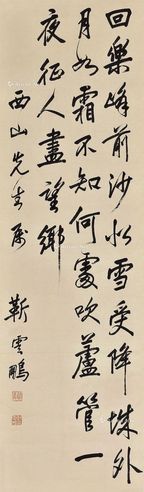 回樂峰前沙似雪受降城外
月如霜不知何處吹蘆管一
夜征人盡望鄉
西山先生屬
靳雲鵬